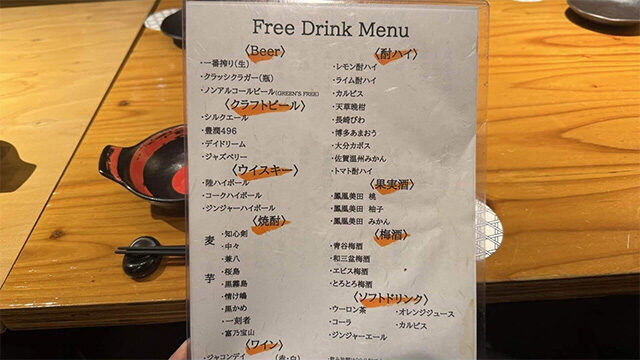 Free Drink Menu
〈Beer〉
・一番搾り(生)
・クラッシクラガー(瓶)
・ノンアルコールビール(GREEN'S FREE)
〈クラフトビール〉
・シルクエール
・豊潤496
・デイドリーム
・ジャズベリー
〈ウイスキー〉
・陸ハイボール
・コークハイボール
・ジンジャーハイボール
〈焼酎〉
麦
・知心剣
・中々
・兼八
芋
・桜島
・黒霧島
・情け嶋
・黒かめ
・一刻者
・富乃宝山
〈ワイン〉
・ジャコンデイ (赤・白)
〈酎ハイ〉
・レモン酎ハイ
・ライム酎ハイ
・カルピス
・天草晩柑
・長崎びわ
・博多あまおう
・大分カボス
・佐賀温州みかん
・トマト酎ハイ
〈果実酒〉
・鳳凰美田 桃
・鳳凰美田 柚子
・鳳凰美田 みかん
〈梅酒〉
・青谷梅酒
・和三盆梅酒
・エビス梅酒
・とろとろ梅酒
〈ソフトドリンク〉
・ウーロン茶 ・オレンジジュース
・コーラ ・カルピス
・ジンジャーエール